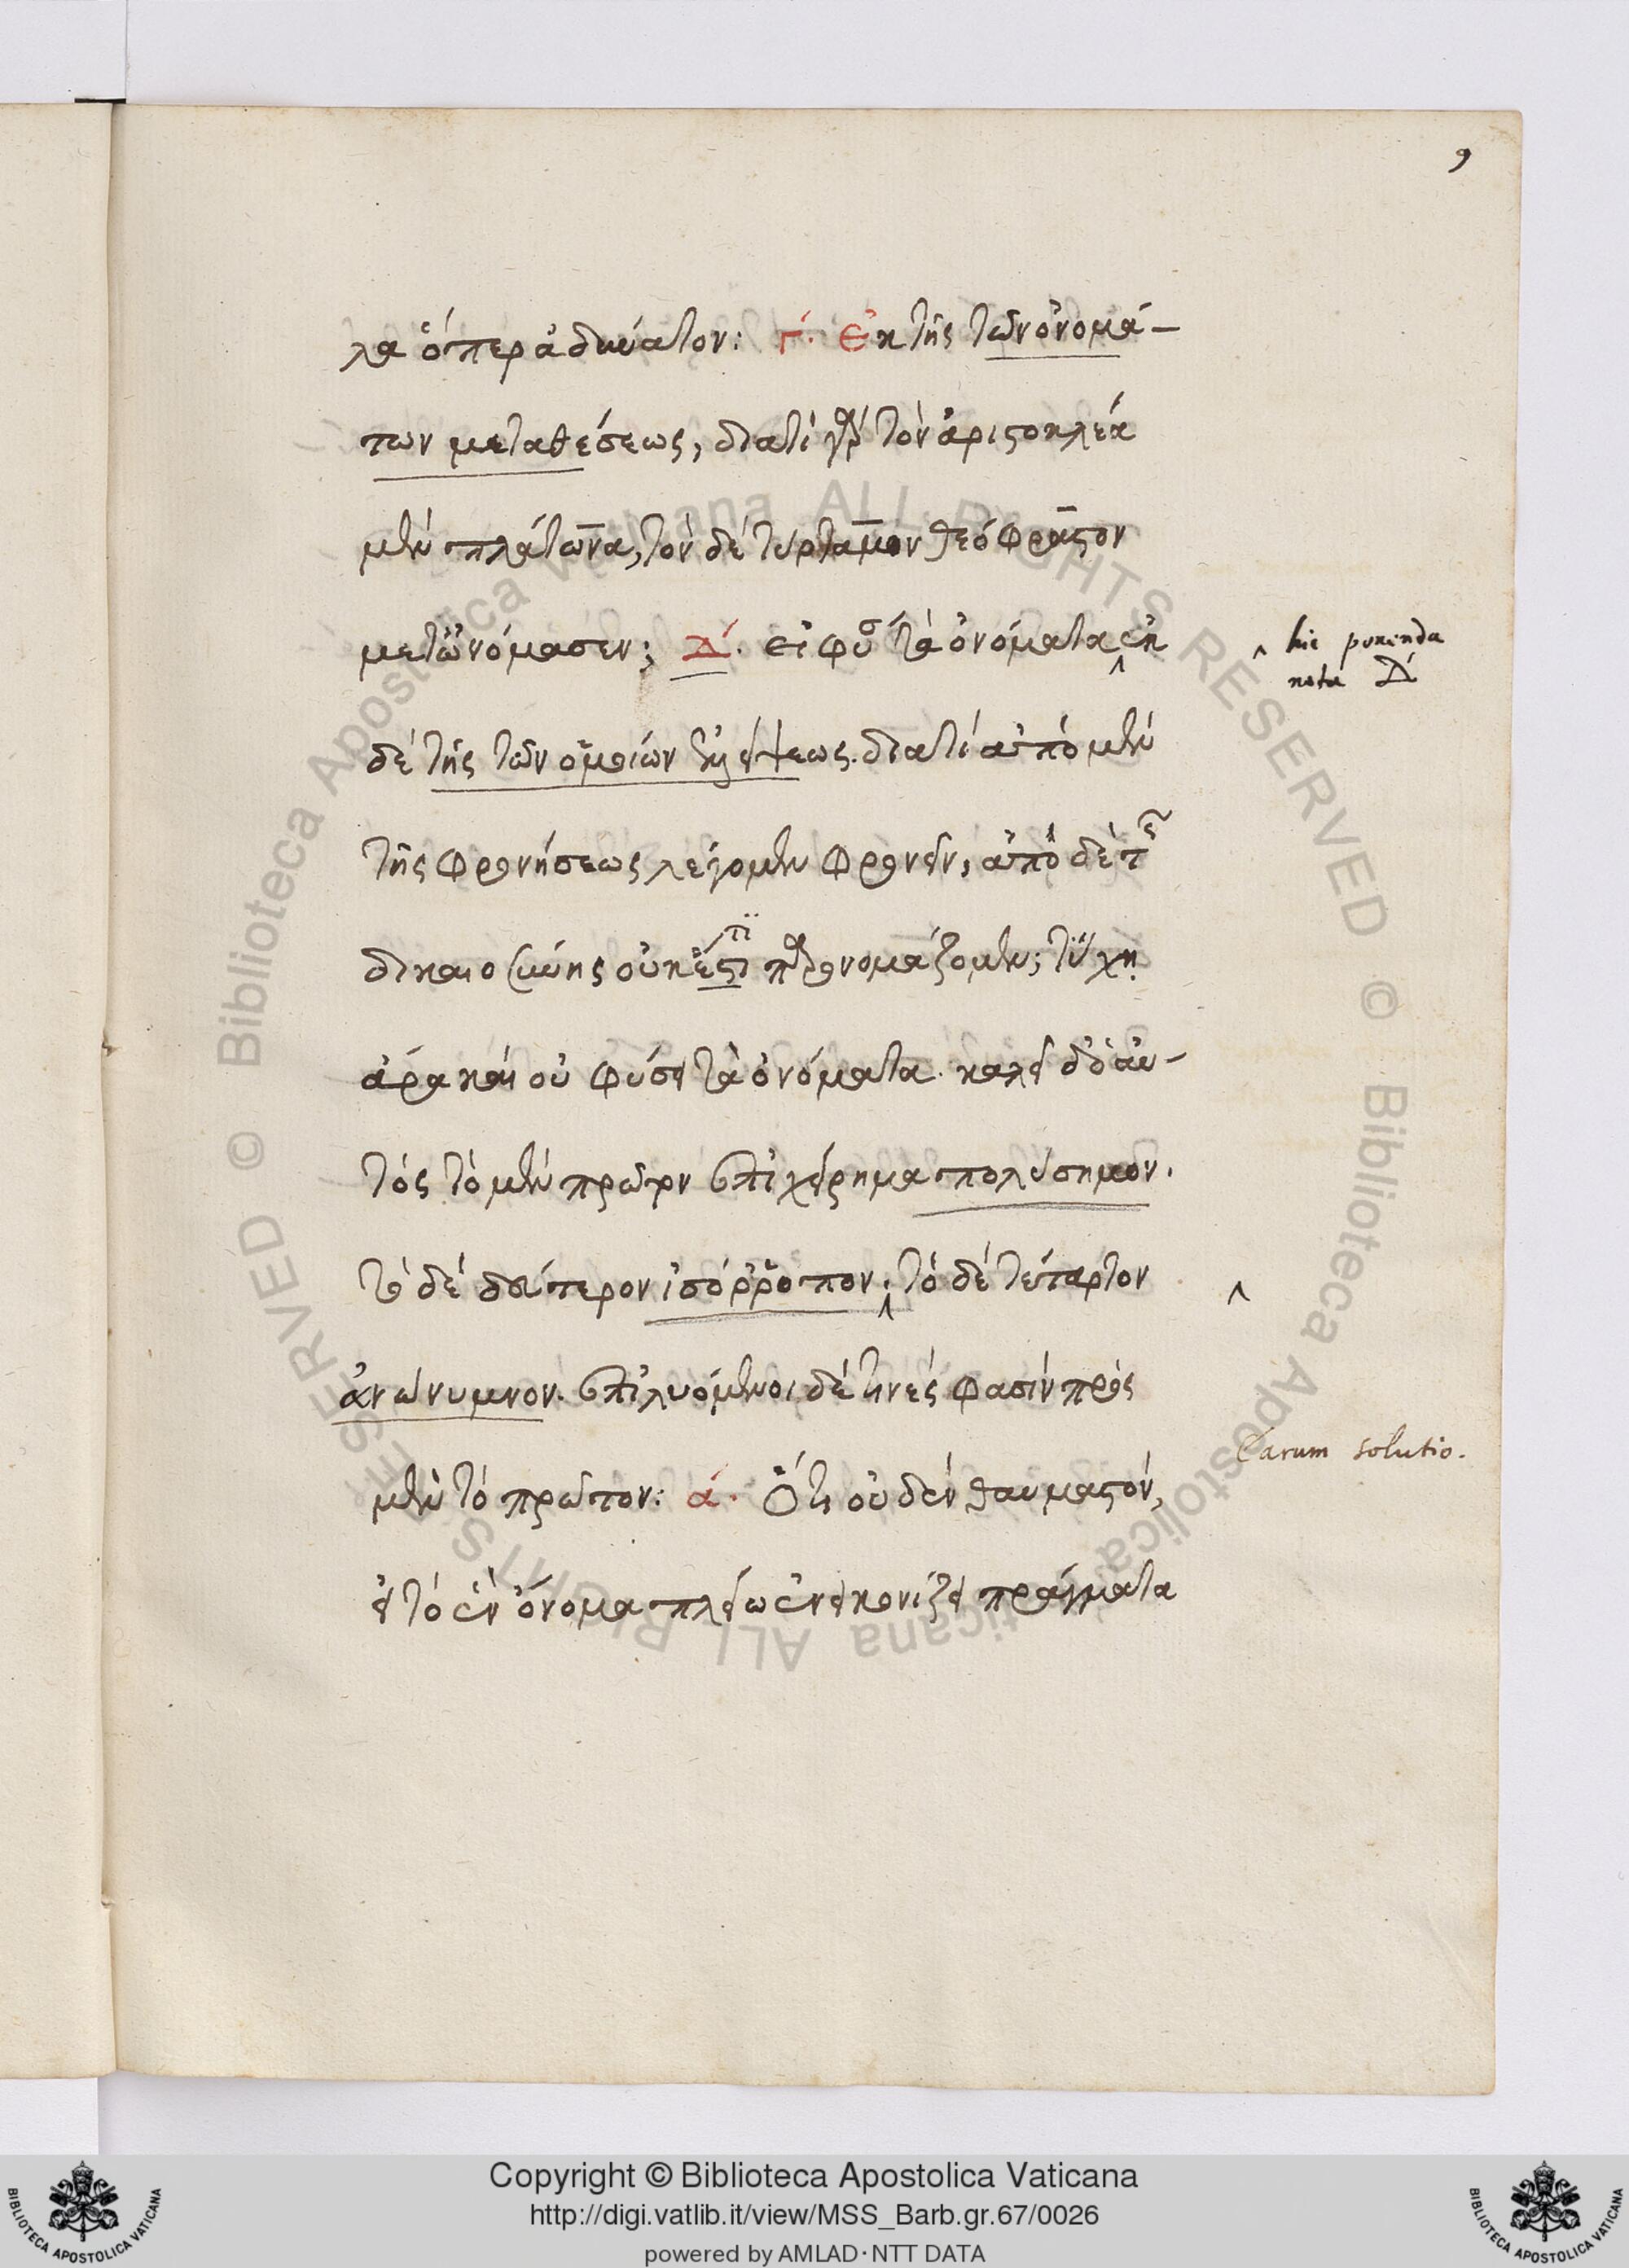 9
λα ὅπερ ἀδύνατον: Γ΄. Ἐκ τῆς τῶν ὀνομά-
των μεταθέσεως, διατί γὰρ τὸν ἀριστοκλέα
μὲν πλάτωνα, τὸν δὲ τύρταμον θεόφραστον
μετωνόμασεν; Δ΄. εἰ φύσ τὰ ὀνόματα ἐκ
δὲ τῆς τῶν ὁμοίων ἐλλείψεως. διατί ἀπὸ μὲν
τῆς φρονήσεως λέγομεν φρονεῖν, ἀπὸ δὲ τῆς
δικαιοσύνης οὐκ ἔτι παρονομάζομεν; τύχῃ
ἄρα καὶ οὐ φύσει τὰ ὀνόματα. καλεῖ δὲ αὐ-
τὸς τὸ μὲν πρῶτον ἐπιχείρημα πολύσημον.
τὸ δὲ δεύτερον ἰσόρροπον. τὸ δὲ τέταρτον
ἀνώνυμνον. ἐπιλυόμενοι δὲ τινὲς φασὶν πρὸς
μὲν τὸ πρῶτον: ά. Ὅτι οὐδὲν θαυμαστόν,
εἰ τὸ ἓν ὄνομα πλείω ἐνεικονίζει πράγματα
^ hic ponenda
nota Δ΄
^
Earum solutio.
Copyright © Biblioteca Apostolica Vaticana
http://digi.vatlib.it/view/MSS_Barb.gr.67/0026
powered by AMLAD·NTT DATA
BIBLIOTECA APOSTOLICA VATICANA
BIBLIOTECA APOSTOLICA VATICANA
© Biblioteca Apostolica Vaticana ALL RIGHTS RESERVED
© Biblioteca Apostolica Vaticana ALL RIGHTS RESERVED